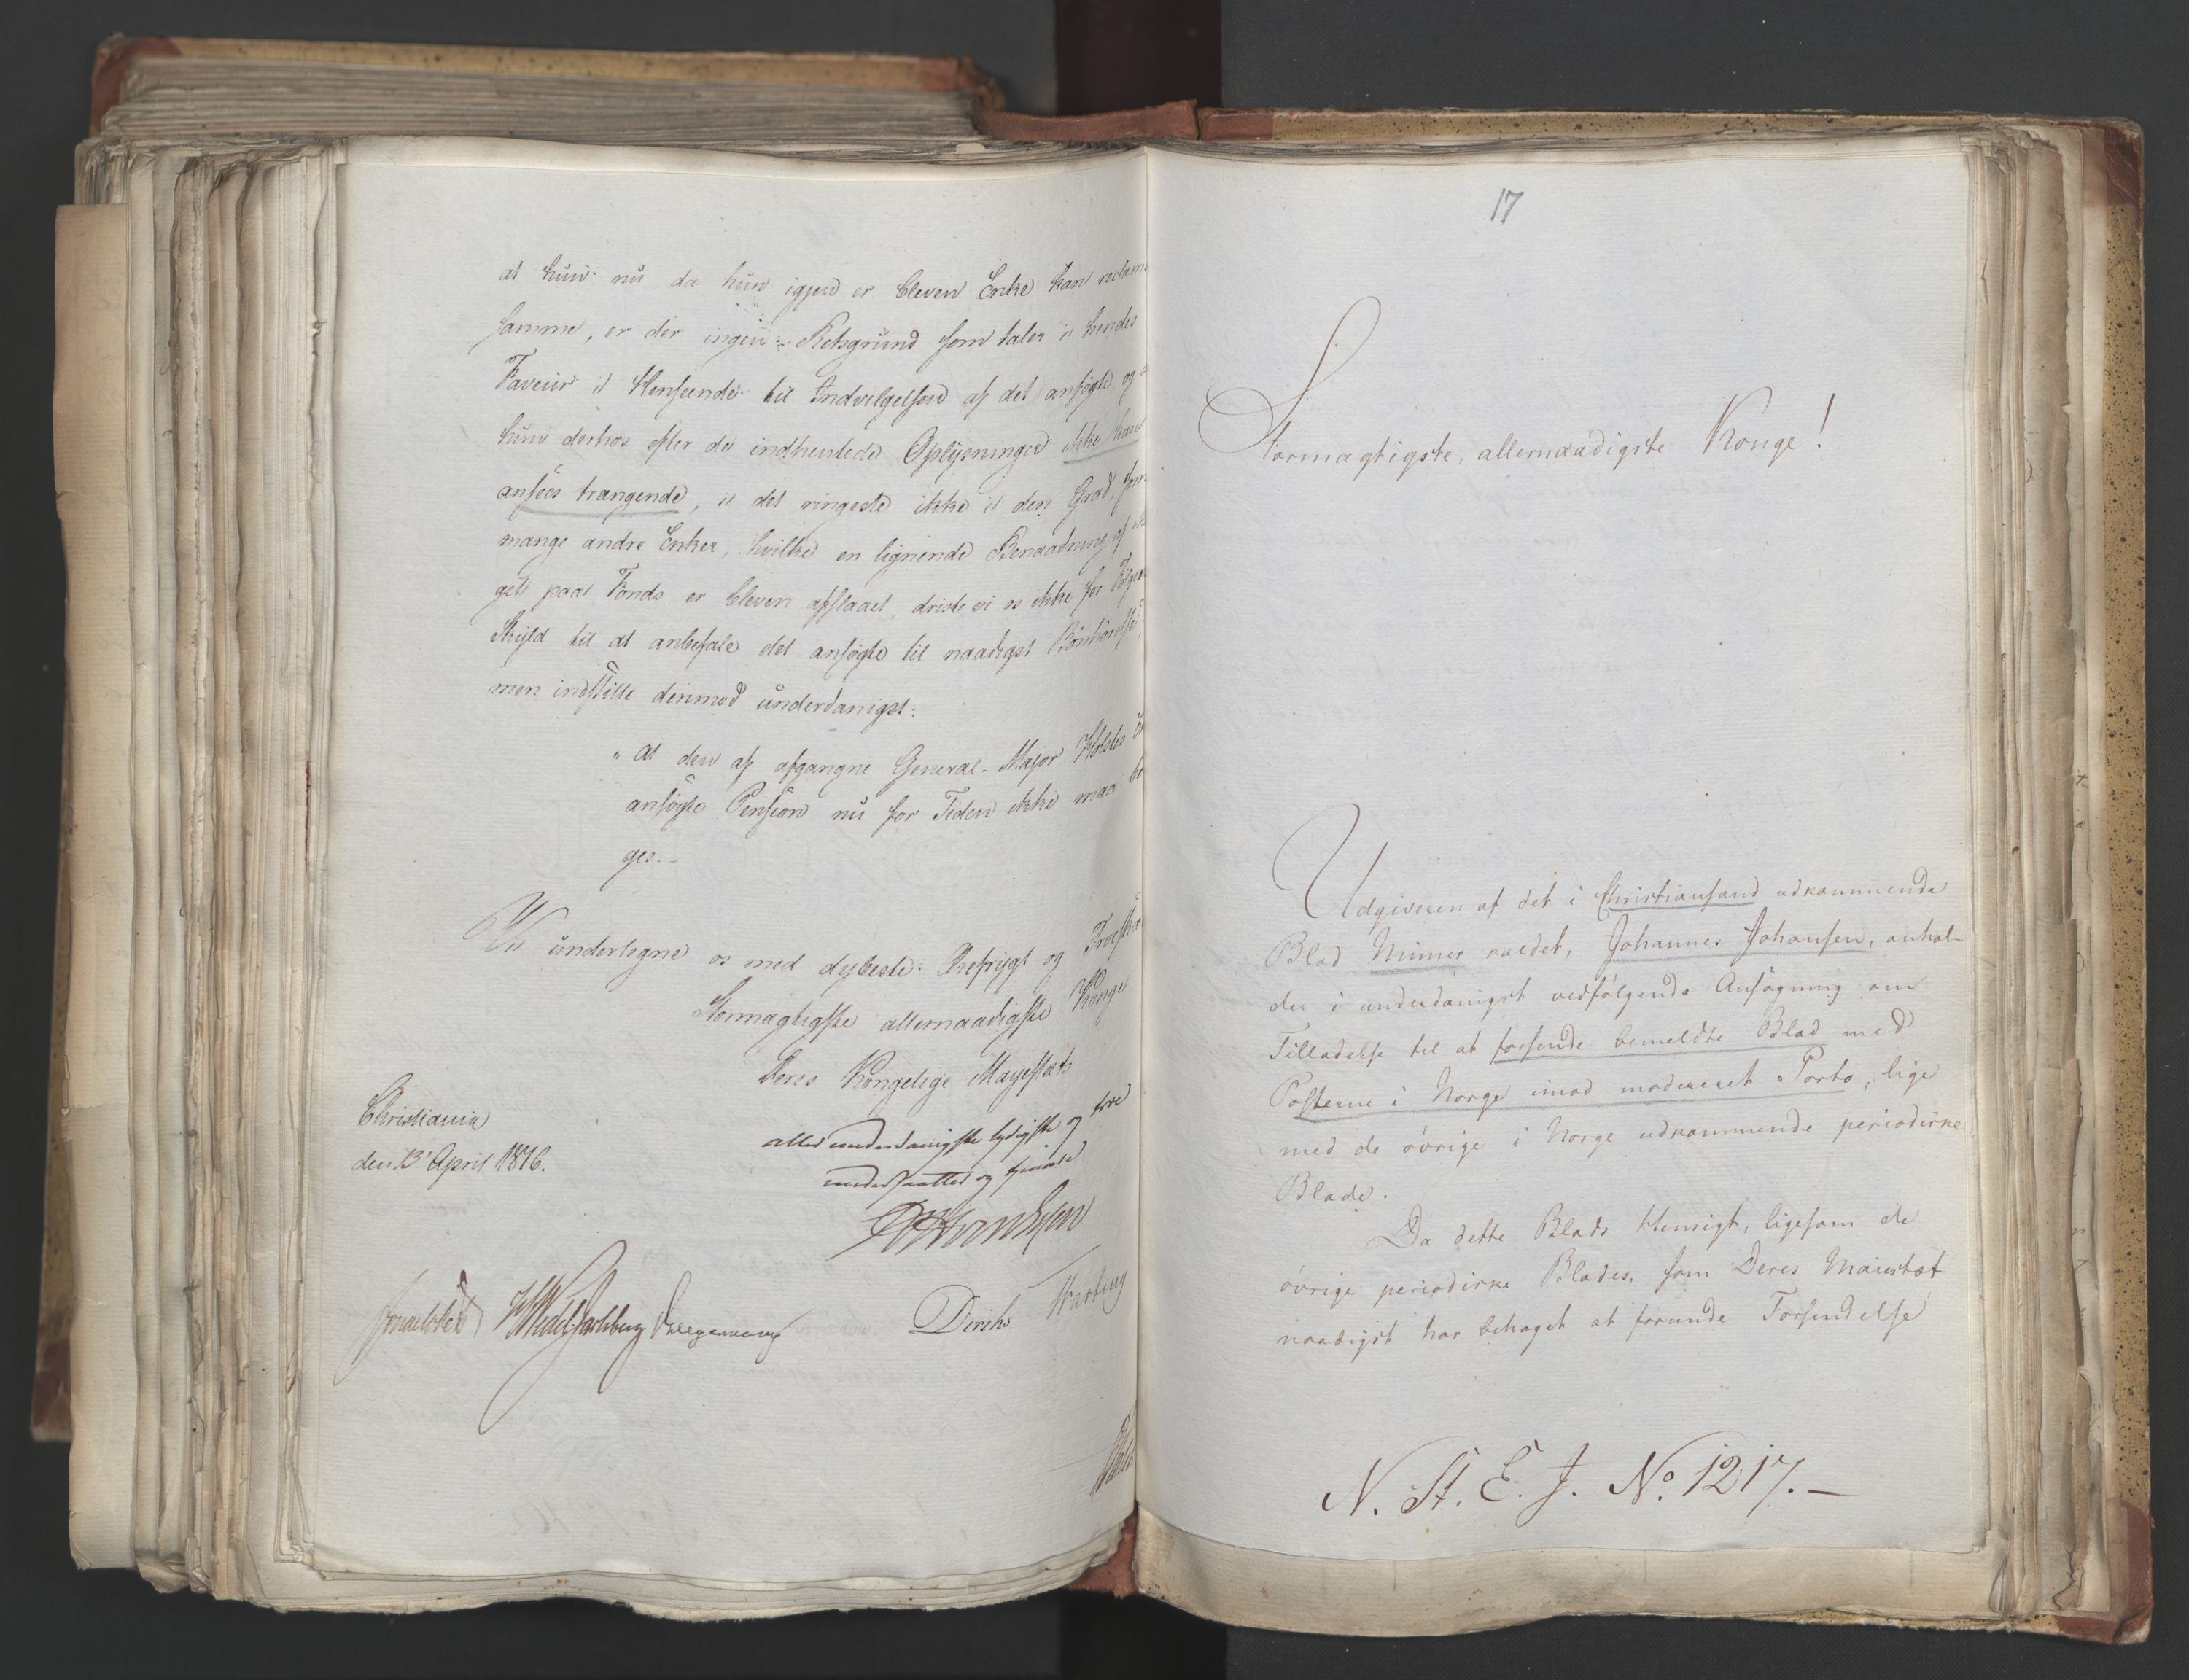 at hun nu da hun igjen er bleven Enke kan reclam
samme, er der ingen Retsgrund som taler i hendes
Faveur i Henseende til Indvilgelsen af det ansøgte, og
hun derhos efter de indhentede Oplysninger ikke kan
ansees trængende, i det ringeste ikke i den Grad, som
mange andre Enker, hvilke en lignende Benaadning af
get paa Fonds er bleven afslaaet, driste vi os ikke for
Skyld til at anbefale det ansøgte til naadigst Bönhörelse,
men indstille derimod underdanigst:
" at den af afgangne General-Major
ansøgte Pension nu for Tiden ikke maa be
ges.
Vi undertegne os med dybeste Ærefrygt og
Stormægtigste allernaadigste Konge
Deres Kongelige Majestæts
Christiania
den 13' April 1816.
allerunderdanigste lydigste og troe
undersaatter og tjenere
Diriks
17
Stormægtigste, allernaadigste Konge!
Udgiveren af det i Christiansand udkommende
Blad Mimer kaldet, Johannes Johansen, anhol-
der i underdanigst vedfølgende Ansøgning om
Tilladelse til at forsende bemeldte Blad med
Posterne i Norge imod modereret Porto, lige
med de övrige i Norge udkommende periodiske
Blade.
Da dette Blads Hensigt, ligesom de
övrige periodiske Blades, som Deres Maiestæt
naadigst har behaget at forunde Forsendelse
N. St. E. J. No. 1217.-